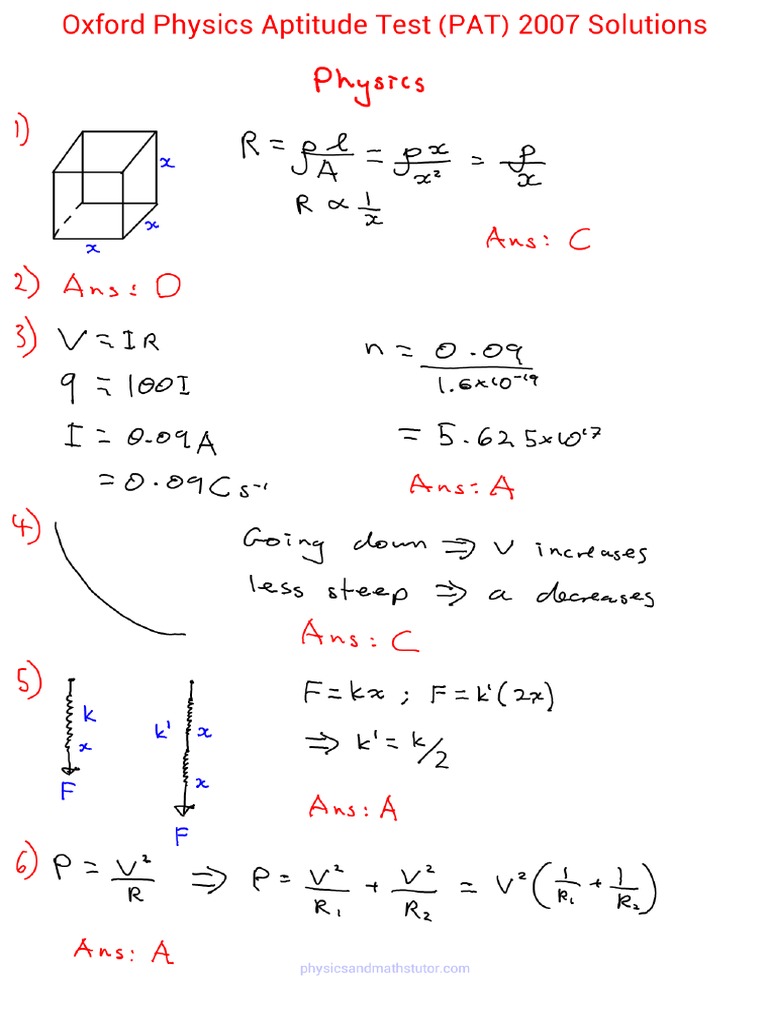 Oxford Physics Aptitude Test (PAT) 2007 Solutions
Physics
1)
x
x
x
R = ρl/A = ρx/x² = ρ/x
R ∝ 1/x
Ans: C
2) Ans: D
3) V = IR
9 = 100I
I = 0.09A
= 0.09C s⁻¹
n = 0.09/1.6×10⁻¹⁹
= 5.625×10¹⁷
Ans: A
4)
Going down ⇒ v increases
less steep ⇒ a decreases
Ans: C
5)
k
x
F
k'
x
x
F
F = kx ; F = k'(2x)
⇒ k' = k/2
Ans: A
6) P = V²/R ⇒ P = V²/R₁ + V²/R₂ = V²(1/R₁ + 1/R₂)
Ans: A
physicsandmathstutor.com